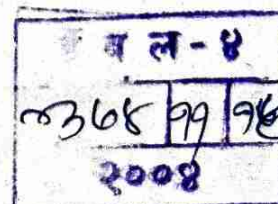 ब ल - ४
७३७४ ११ १५
२००४